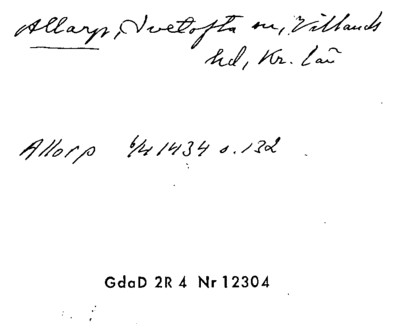 Allarp, Ivetofta sn, Villands
hd, Kr. län
Allorp 6/4 1434 s. 132
GdaD 2R 4 Nr 12304